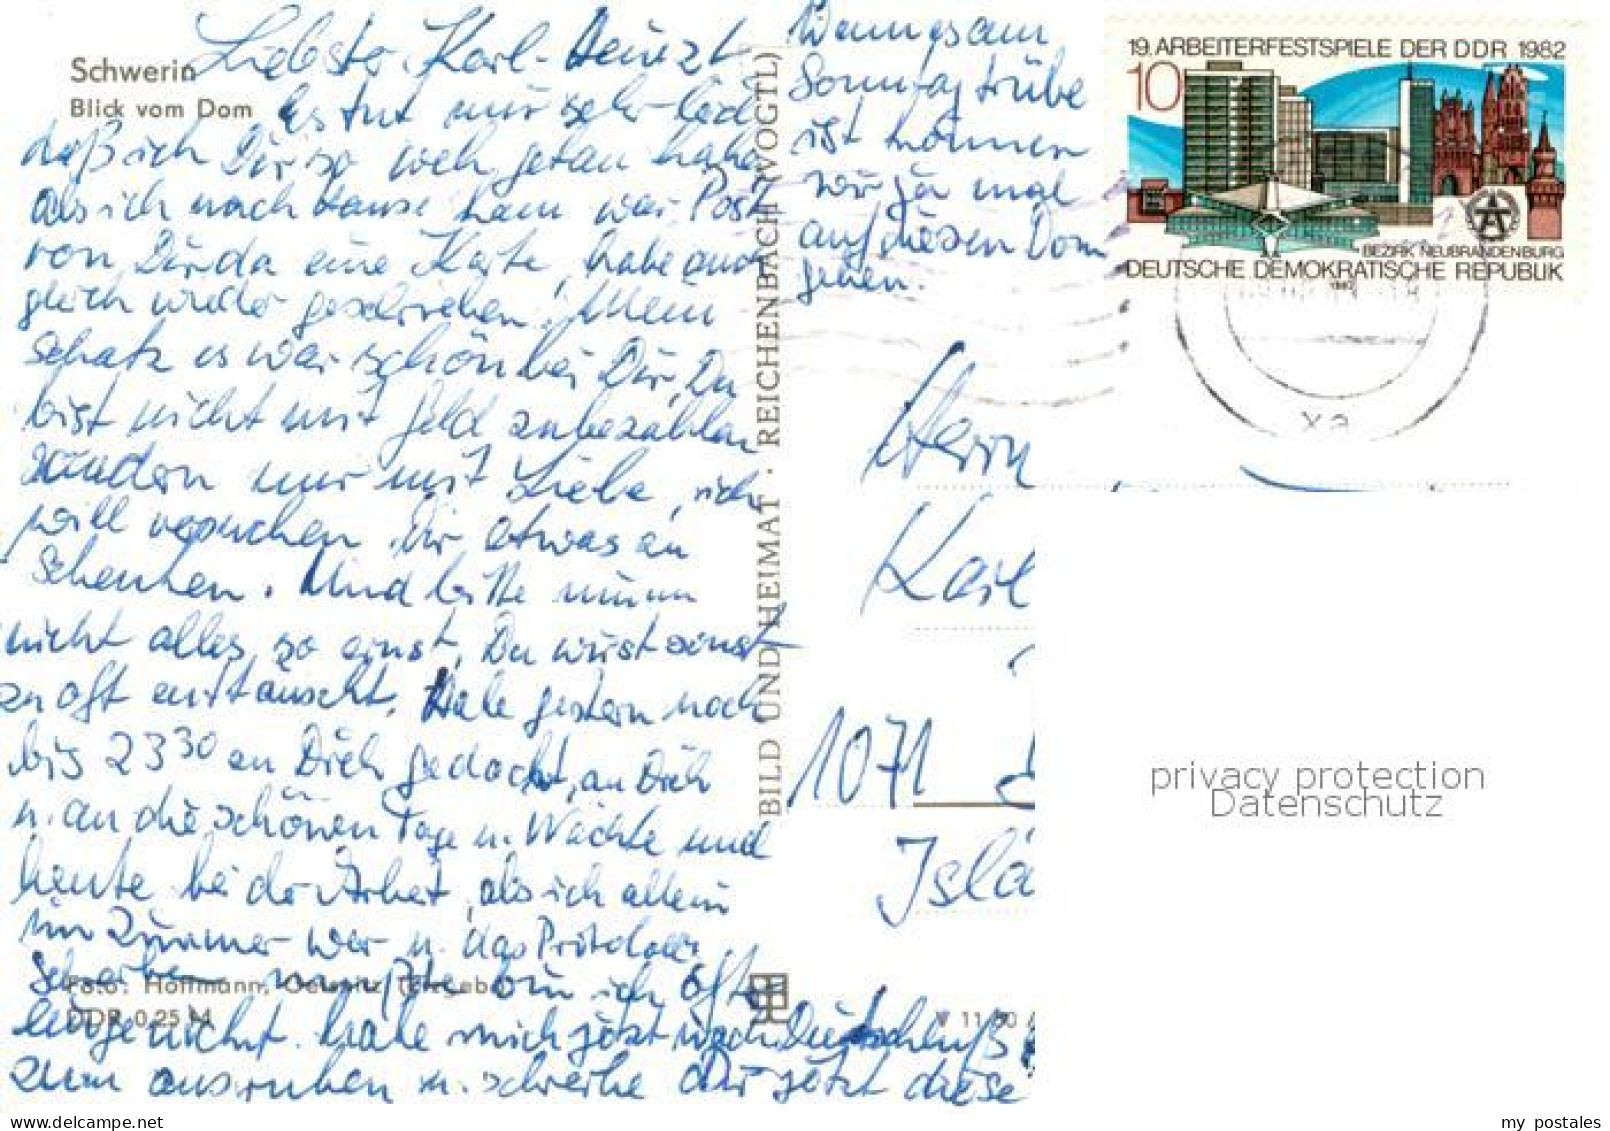 Schwerin
Blick vom Dom
Liebster Karl-Heinz!
Es tut mir sehr leid
daß ich Dir so weh getan habe
Als ich nach Hause kam war Post
von eine Karte, habe auch
gleich wieder geschrieben! Mein
Schatz es war schön bei Dir, Du
bist nicht mit Geld zubezahlen
sondern nur mit Liebe, ich
will versuchen Dir etwas zu
schenken. Und bitte nimm
nicht alles so ernst, Du wirst sonst
zu oft enttäuscht. Habe gestern noch
bis 23 30 an Dich gedacht, an Dich
u. an die schönen Tage u. Nächte und
heute bei der Arbeit, als ich allein
im Zimmer war u. das
schreiben mußte bin ich öfter
eingenickt. habe mich jetzt nach Dienstschluß
zum ausruhen u. schreibe Dir jetzt diese
Wenn es am
Sonntag trübe
ist können
wir ja mal
auf diesen Dom
gehen.
Foto: Hoffmann, Oelsnitz (Erzgeb.)
DDR 0,25 M
BILD UND HEIMAT · REICHENBACH (VOGTL)
V 11 50 A
19. ARBEITERFESTSPIELE DER DDR 1982
10
BEZIRK NEUBRANDENBURG
DEUTSCHE DEMOKRATISCHE REPUBLIK
1982
xa
Herrn
Karl
1071
Islä
privacy protection
Datenschutz
my postales